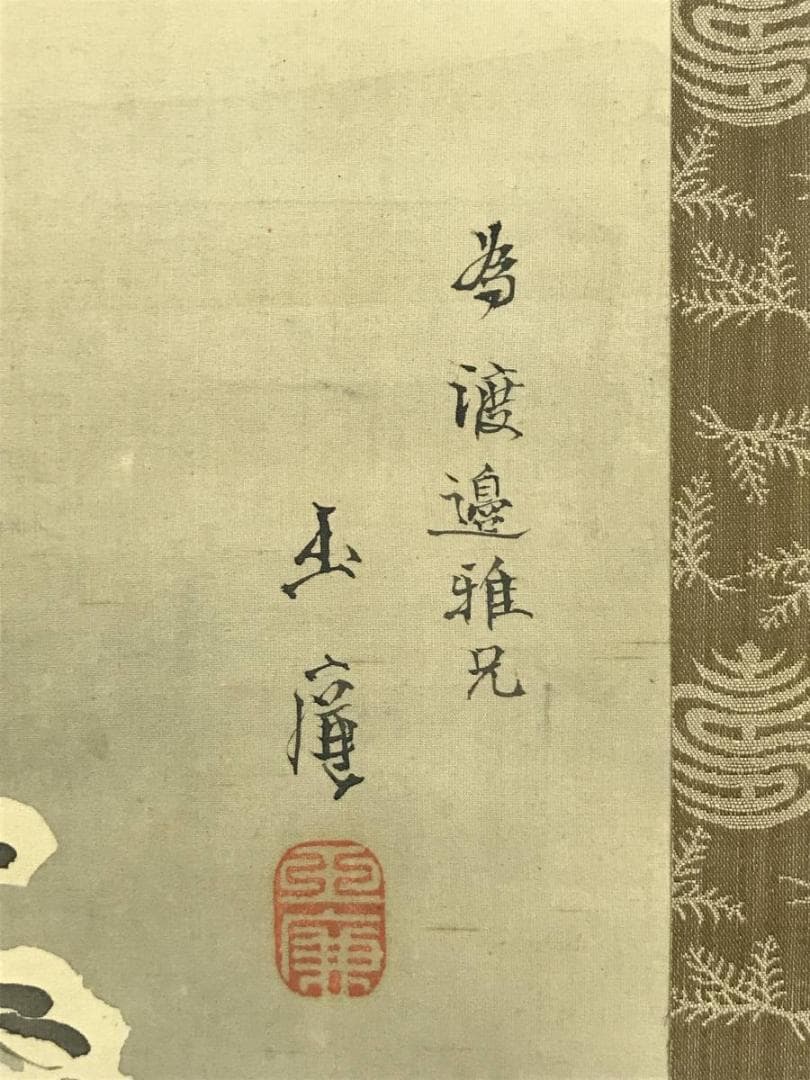 為渡邊雅兄
玉廉